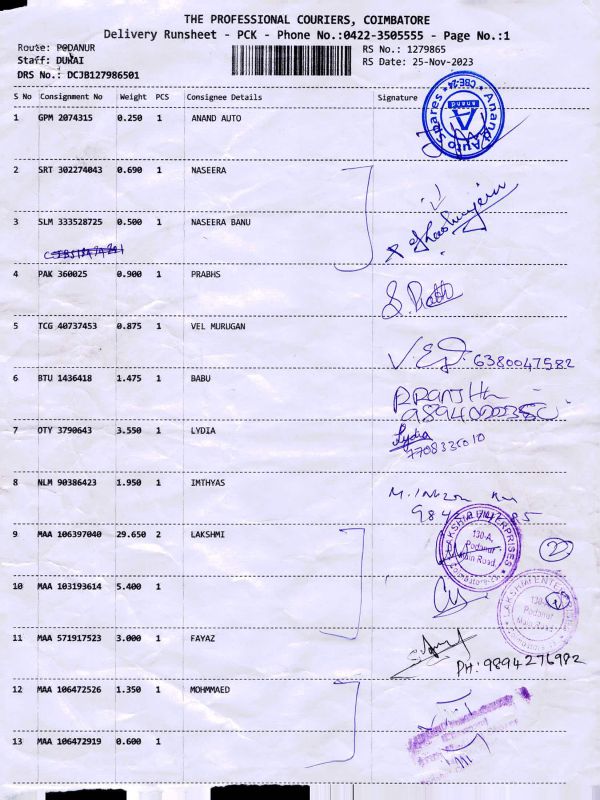 THE PROFESSIONAL COURIERS, COIMBATORE
Delivery Runsheet - PCK - Phone No.:0422-3505555 - Page No.:1
Route: PODANUR
RS No.: 1279865
Staff: DURAI
RS Date: 25-Nov-2023
DRS No.: DCJB127986501
S No Consignment No Weight PCS Consignee Details Signature
1 GPM 2074315 0.250 1 ANAND AUTO
Anand Auto Spares CBE-24
2 SRT 302274043 0.690 1 NASEERA
3 SLM 333528725 0.500 1 NASEERA BANU
4 PAK 360025 0.900 1 PRABHS
5 TCG 40737453 0.875 1 VEL MURUGAN
6380047582
6 BTU 1436418 1.475 1 BABU
7 OTY 3790643 3.550 1 LYDIA
Lydia
7708335010
8 NLM 90386423 1.950 1 IMTHYAS
9 MAA 106397040 29.650 2 LAKSHMI
LAKSHMI ENTERPRISES 130-A, Podanur Main Road, Coimbatore
2
10 MAA 103193614 5.400 1
LAKSHMI ENTERPRISES 130-A, Podanur Main Road
11 MAA 571917523 3.000 1 FAYAZ
PH: 9894276982
12 MAA 106472526 1.350 1 MOHMMAED
13 MAA 106472919 0.600 1